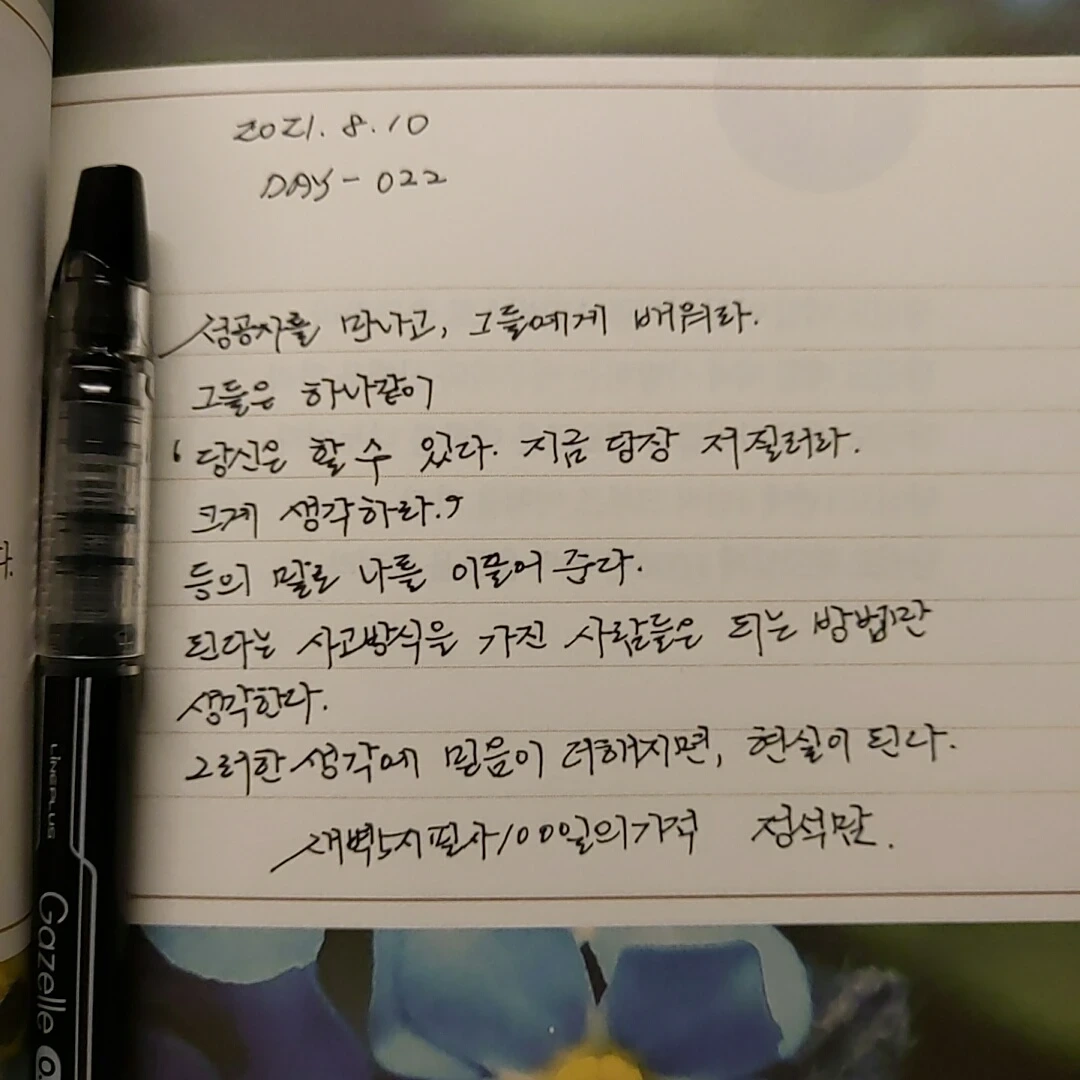 2021.8.10
DAY-022
성공자를 만나고, 그들에게 배워라.
그들은 하나같이
'당신은 할 수 있다. 지금 당장 저질러라.
크게 생각하라.'
등의 말로 나를 이끌어 준다.
된다는 사고방식을 가진 사람들은 되는 방법만
생각한다.
그러한 생각에 믿음이 더해지면, 현실이 된다.
새벽5시필사100일의기적
다.
LINEPLUS
Gazelle